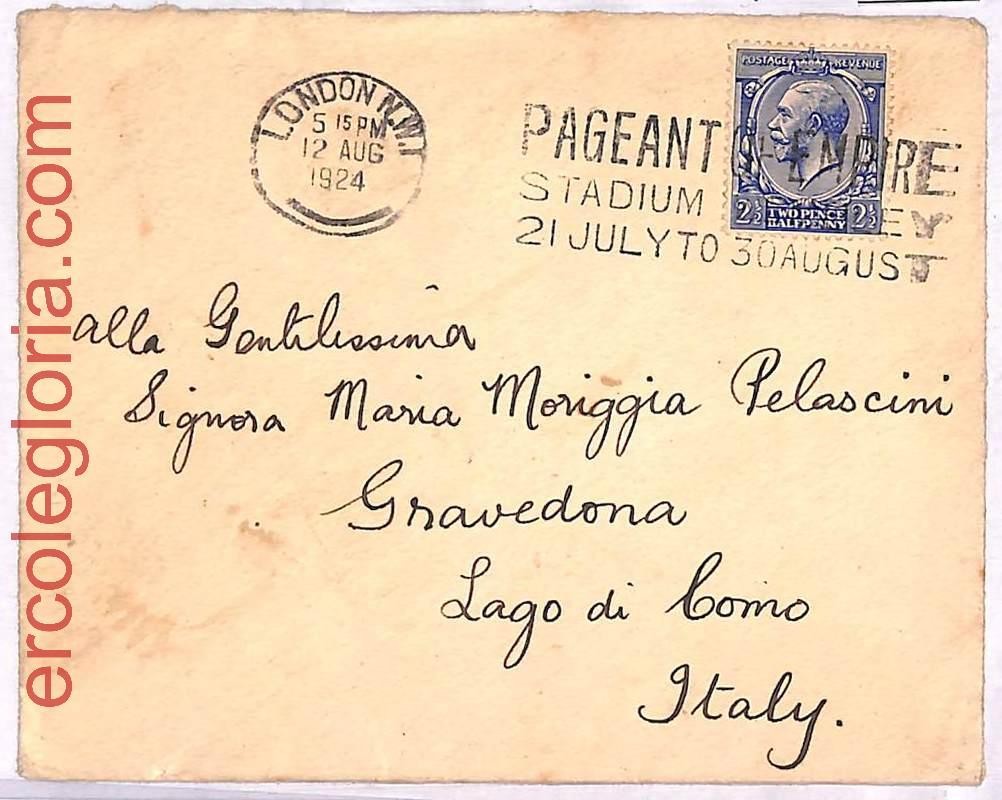 POSTAGE REVENUE
LONDON N.W.1
5 15 PM
12 AUG
1924
PAGEANT OF EMPIRE
STADIUM EY
21 JULY TO 30 AUGUST
2½ TWO PENCE HALFPENNY 2½
alla Gentilissima
Signora Maria Moriggia Pelascini
Gravedona
Lago di Como
Italy.
ercolegloria.com